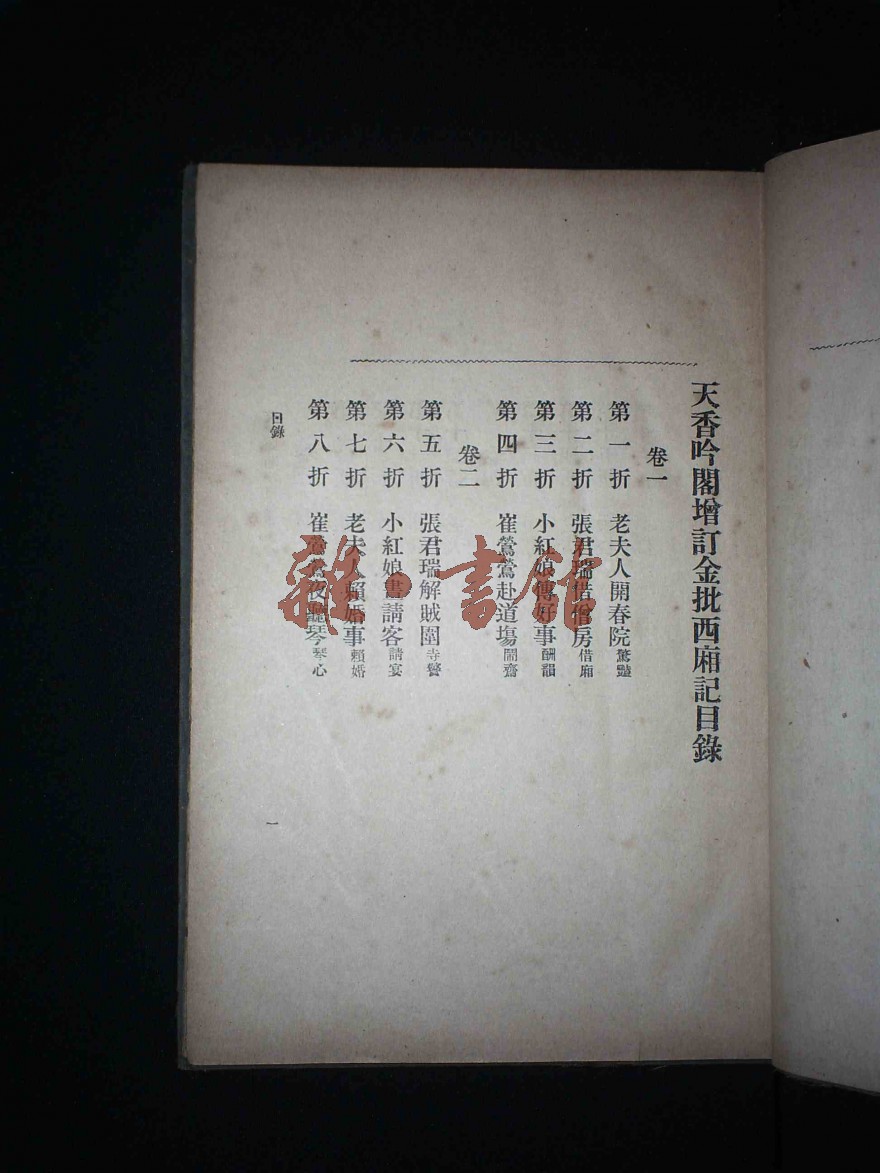 天香吟閣增訂金批西廂記目錄
卷一
第一折 老夫人開春院 驚豔
第二折 張君瑞借僧房 借廂
第三折 小紅娘傳好事 酬韻
第四折 崔鶯鶯赴道塲 鬧齋
卷二
第五折 張君瑞解賊圍 寺警
第六折 小紅娘晝請客 請宴
第七折 老夫人賴婚事 賴婚
第八折 崔鶯鶯夜聽琴 琴心
目錄
一
雜·書館